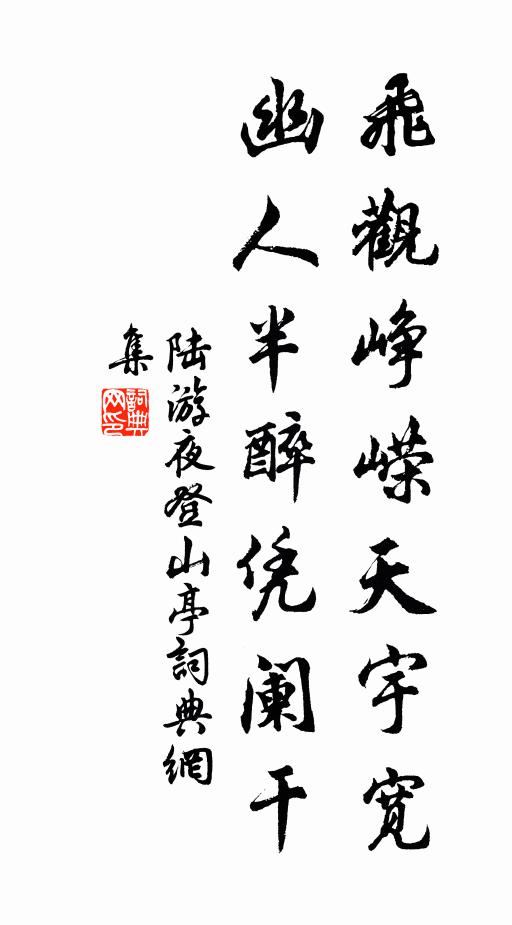 飛觀峥嵘天宇寬
幽人半醉凭阑干
陆游夜登山亭詞典網
集
詞典
网印